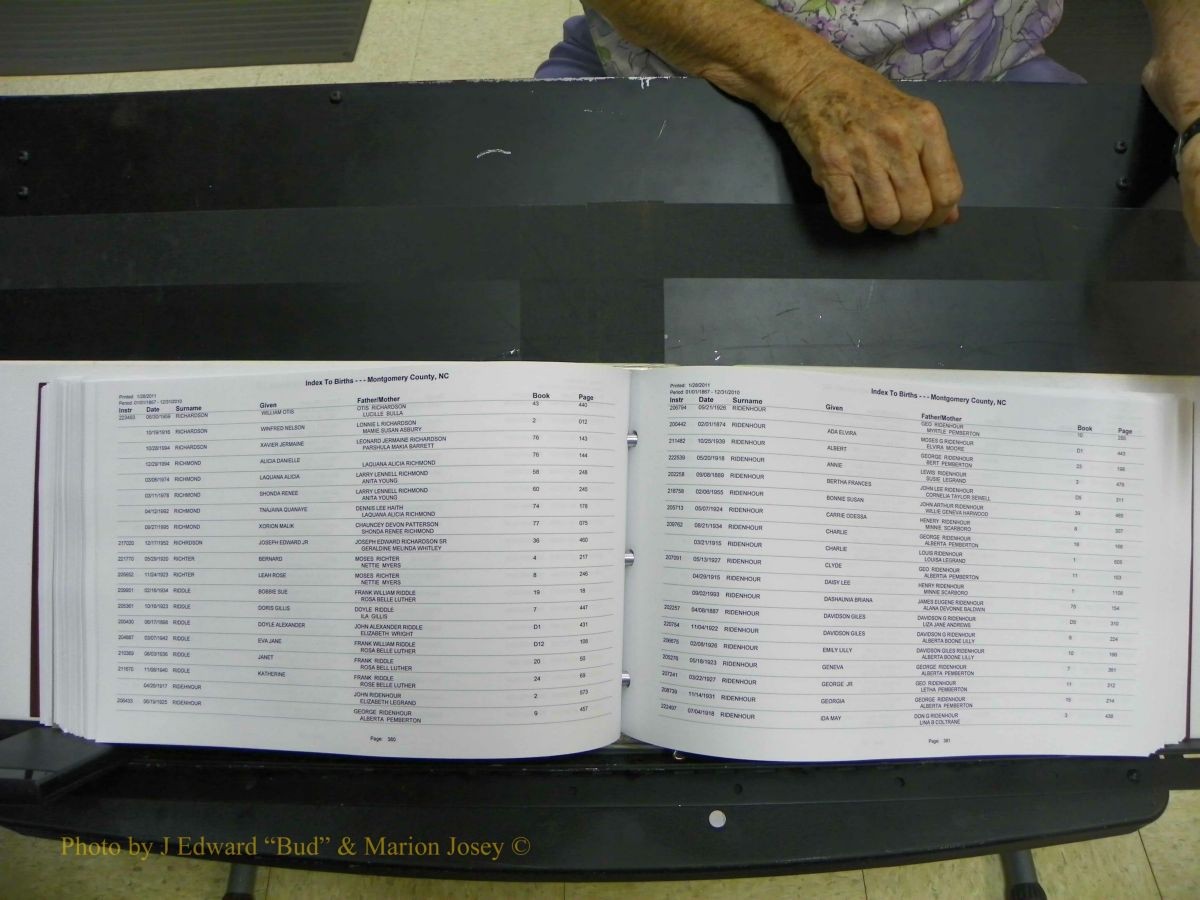 Index To Births - - - Montgomery County, NC
Printed: 1/28/2011
Period: 01/01/1867 - 12/31/2010
Instr Date Surname Given Father/Mother Book Page
RICHARDSON WILLIAM OTIS OTIS RICHARDSON 43 440
LUCILLE BULLA
10/19/1916 RICHARDSON WINFRED NELSON LONNIE L RICHARDSON 2 012
MAMIE SUSAN ASBURY
10/28/1994 RICHARDSON XAVIER JERMAINE LEONARD JERMAINE RICHARDSON 76 143
PARSHULA MAKIA BARRETT
12/29/1994 RICHMOND ALICIA DANIELLE 76 144
LAQUANA ALICIA RICHMOND
RICHMOND LAQUANA ALICIA LARRY LENNELL RICHMOND 58 248
ANITA YOUNG
03/11/1978 RICHMOND SHONDA RENEE LARRY LENNELL RICHMOND 60 245
ANITA YOUNG
04/12/1992 RICHMOND TNAJANA QUANAYE DENNIS LEE HAITH 74 178
LAQUANA ALICIA RICHMOND
09/27/1995 RICHMOND XORION MALIK CHAUNCEY DEVON PATTERSON 77 075
SHONDA RENEE RICHMOND
217020 12/17/1952 RICHRDSON JOSEPH EDWARD JR JOSEPH EDWARD RICHARDSON SR 36 460
GERALDINE MELINDA WHITLEY
221770 05/29/1920 RICHTER BERNARD MOSES RICHTER 4 217
NETTIE MYERS
205652 11/24/1923 RICHTER LEAH ROSE MOSES RICHTER 8 246
NETTIE MYERS
02/16/1934 RIDDLE BOBBIE SUE FRANK WILLIAM RIDDLE 19 18
ROSA BELLE LUTHER
205361 10/16/1923 RIDDLE DORIS GILLIS DOYLE RIDDLE 7 447
ILA GILLIS
200430 RIDDLE DOYLE ALEXANDER JOHN ALEXANDER RIDDLE D1 431
ELIZABETH WRIGHT
204687 03/07/1942 RIDDLE EVA JANE FRANK WILLIAM RIDDLE D12 108
ROSA BELLE LUTHER
210369 06/03/1936 RIDDLE JANET FRANK RIDDLE 20 59
ROSA BELL LUTHER
211670 11/08/1940 RIDDLE KATHERINE FRANK RIDDLE 24 69
ROSE BELLE LUTHER
04/26/1917 RIDEHNOUR JOHN RIDENHOUR 2 573
ELIZABETH LEGRAND
206433 06/19/1925 RIDENHOUR GEORGE RIDENHOUR 9 457
ALBERTA PEMBERTON
Page: 380
Index To Births - - - Montgomery County, NC
Printed: 1/28/2011
Period: 01/01/1867 - 12/31/2010
Instr Date Surname Given Father/Mother Book Page
206794 05/21/1926 RIDENHOUR GEO RIDENHOUR 10
MYRTLE PEMBERTON
200442 02/01/1874 RIDENHOUR ADA ELVIRA MOSES G RIDENHOUR D1 443
ELVIRA MOORE
211482 10/25/1939 RIDENHOUR ALBERT GEORGE RIDENHOUR 23 198
BERT PEMBERTON
222539 05/20/1918 RIDENHOUR ANNIE LEWIS RIDENHOUR 479
SUSIE LEGRAND
202258 09/08/1889 RIDENHOUR BERTHA FRANCES JOHN LEE RIDENHOUR D5 311
CORNELIA TAYLOR SEWELL
218758 02/06/1955 RIDENHOUR BONNIE SUSAN JOHN ARTHUR RIDENHOUR 39
WILLIE GENEVA HARWOOD
205713 05/07/1924 RIDENHOUR CARRIE ODESSA HENERY RIDENHOUR 8
MINNIE SCARBORO
209762 08/21/1934 RIDENHOUR CHARLIE GEORGE RIDENHOUR
ALBERTA PEMBERTON
03/21/1915 RIDENHOUR CHARLIE LOUIS RIDENHOUR 1
LOUISA LEGRAND
207091 05/13/1927 RIDENHOUR CLYDE GEO RIDENHOUR 11
ALBERTIA PEMBERTON
04/29/1915 RIDENHOUR DAISY LEE HENRY RIDENHOUR
MINNIE SCARBORO
09/02/1993 RIDENHOUR DASHAUNIA BRIANA JAMES EUGENE RIDENHOUR 75 154
ALANA DEVONNE BALDWIN
202257 04/08/1887 RIDENHOUR DAVIDSON GILES DAVIDSON G RIDENHOUR D5 310
LIZA JANE ANDREWS
220754 11/04/1922 RIDENHOUR DAVIDSON GILES DAVIDSON G RIDENHOUR 6 224
ALBERTA BOONE LILLY
206675 02/08/1926 RIDENHOUR EMILY LILLY DAVIDSON GILES RIDENHOUR 10
ALBERTA BOONE LILLY
205276 05/16/1923 RIDENHOUR GENEVA GEORGE RIDENHOUR 7 361
ALBERTA PEMBERTON
207241 03/22/1927 RIDENHOUR GEORGE JR GEO RIDENHOUR 11 212
LETHA PEMBERTON
208739 11/14/1931 RIDENHOUR GEORGIA GEORGE RIDENHOUR 15 214
ALBERTA PEMBERTON
222497 07/04/1918 RIDENHOUR IDA MAY DON G RIDENHOUR 3 436
LINA B COLTRANE
Page: 381
Photo by J Edward “Bud” & Marion Josey ©